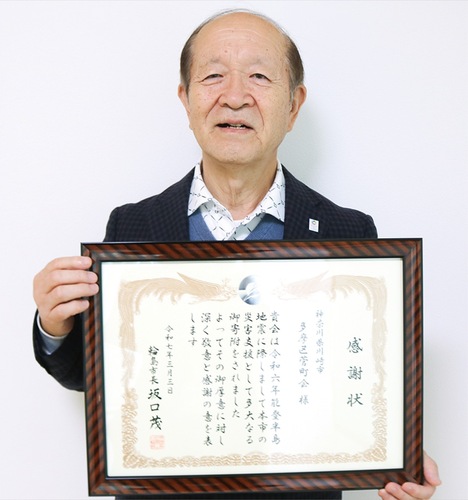 感謝状
神奈川県川崎市
多摩区菅町会 様
貴会は令和六年能登半島
地震に際しまして本市の
災害支援として多大なる
御寄附をされました
よってその御厚意に対し
深く敬意と感謝の意を表
します
令和七年三月三日
輪島市長 坂口茂